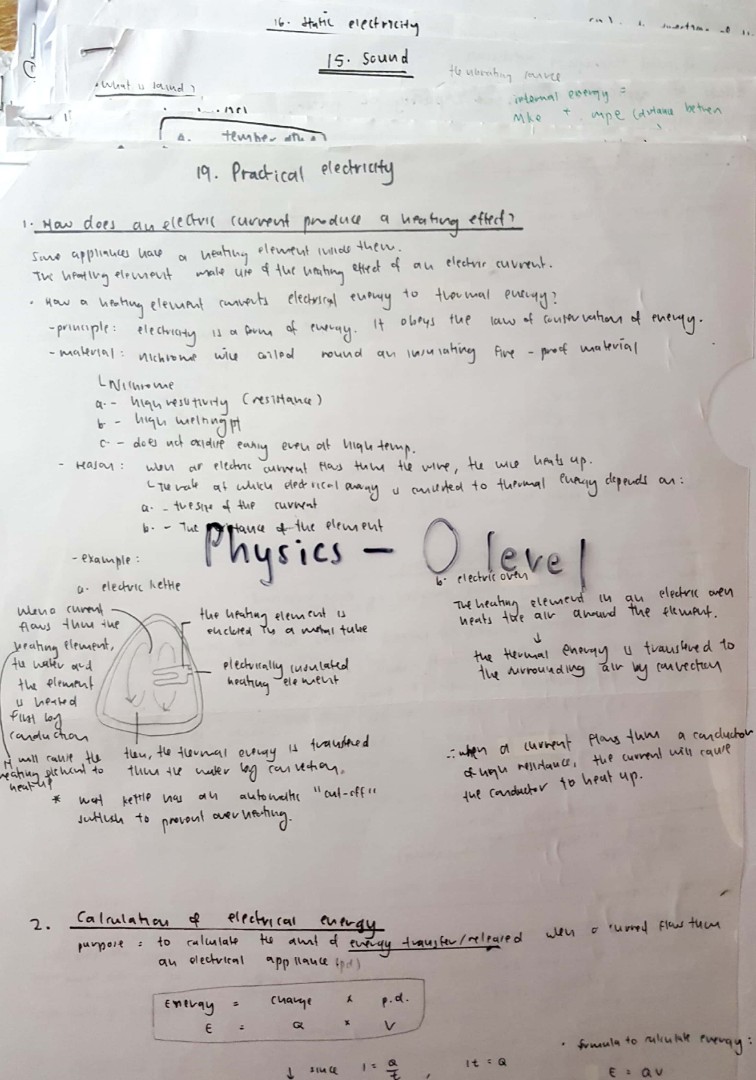 16. Static electricity
15. Sound
What is sound?
internal energy =
Mke + mpe (distance between
19. Practical electricity
1. How does an electric current produce a heating effect?
Some appliances have a heating element inside them.
The heating element make use of the heating effect of an electric current.
• How a heating element converts electrical energy to thermal energy?
- principle: electricity is a form of energy. It obeys the law of conservation of energy.
- material: nichrome wire coiled round an insulating fire-proof material
Nichrome
a. - high resistivity (resistance)
b - high melting pt
c - does not oxidise easily even at high temp.
- reason: when an electric current flows thru the wire, the wire heats up.
The rate at which electrical energy is converted to thermal energy depends on:
a. - the size of the current
b. - The resistance of the element
Physics - O level
- example:
a. electric kettle
b. electric oven
when a current flows thru the heating element, the water and the element is heated first by conduction
It will cause the heating element to heat up
the heating element is
enclosed in a metal tube
electrically insulated
heating element
The heating element in an electric oven
heats the air around the element.
↓
the thermal energy is transferred to
the surrounding air by convection
then, the thermal energy is transferred
thru the water by convection.
∴ when a current flows thru a conductor
of high resistance, the current will cause
the conductor to heat up.
* most kettle has an automatic "cut-off"
switch to prevent overheating.
2. Calculation of electrical energy
purpose: to calculate the amt of energy transfer/released when a current flow thru
an electrical appliance (pd)
Energy = charge x p.d.
E = Q x V
↓ since I = Q/t, It = Q
• formula to calculate energy:
E = QV